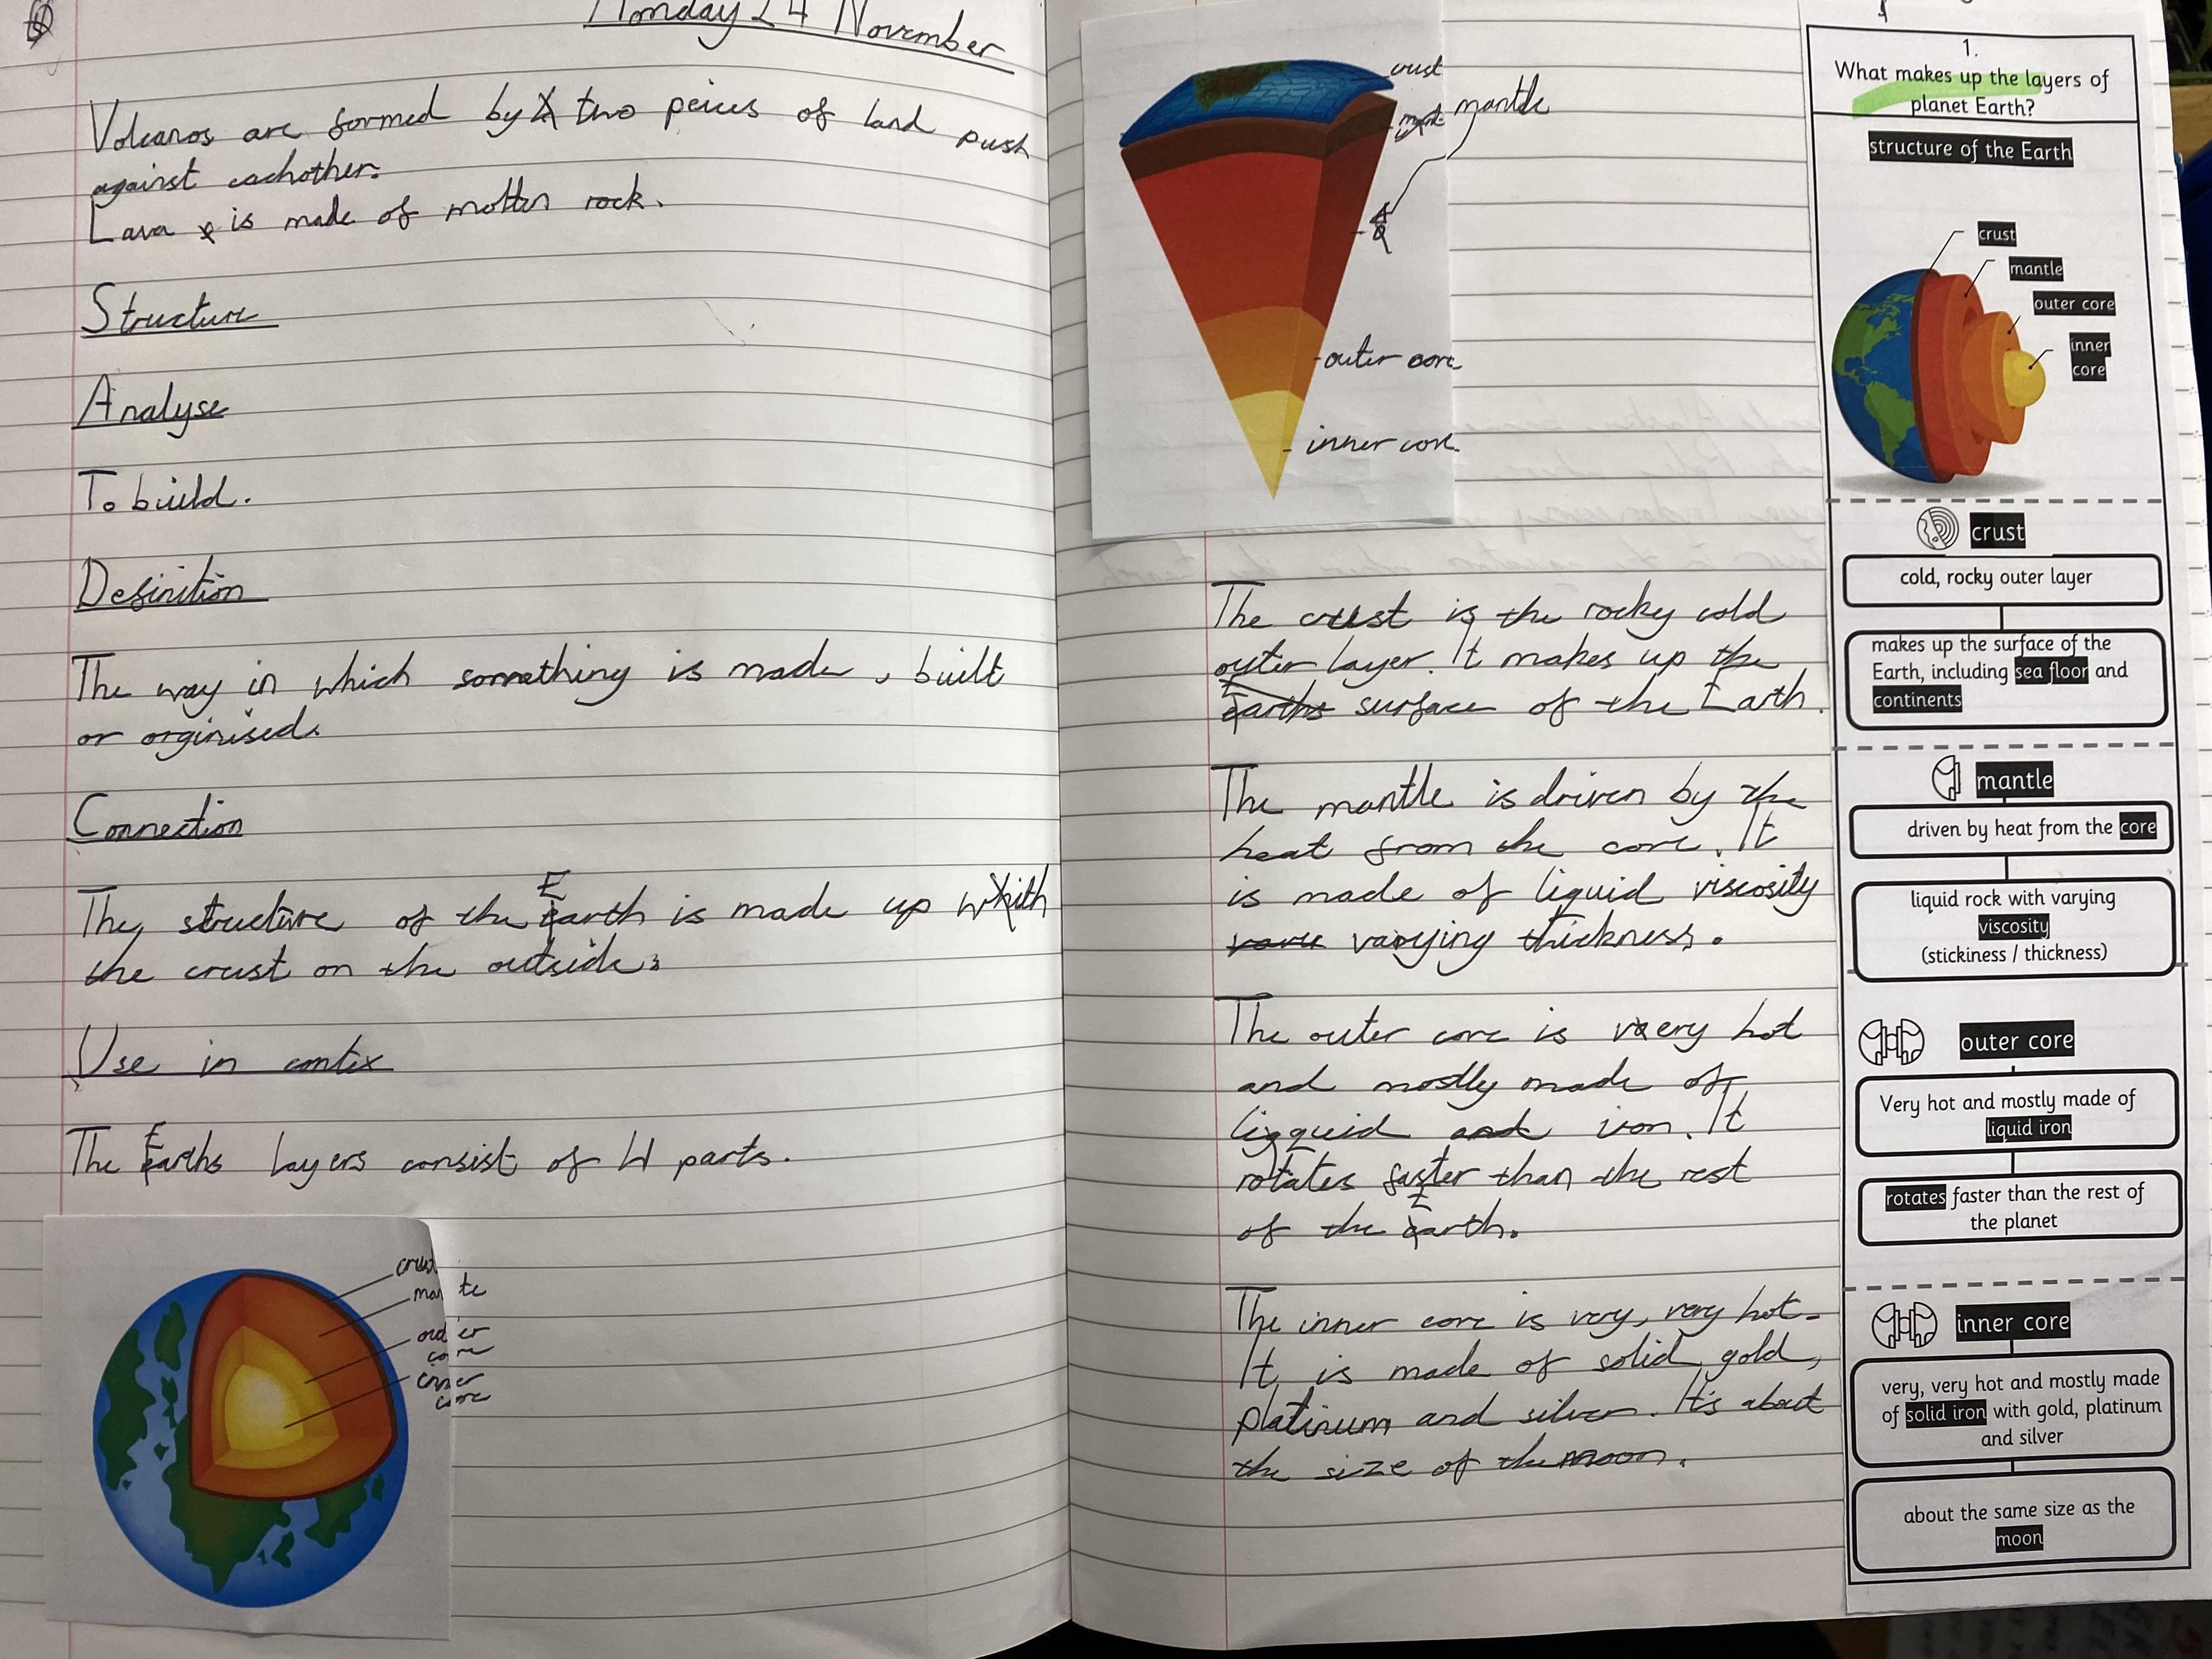 Monday 24 November
Volcanos are formed by two peices of land push
against eachother.
Lava is made of molten rock.
Structure
Analyse
To build.
Definition
The way in which something is made, built
or orginised.
Connection
The structure of the Earth is made up with
the crust on the outside.
Use in contex
The Earths layers consist of 4 parts.
crust
mantle
outer
core
inner
core
crust
mantle
outer core
inner core
The crust is the rocky cold
outer layer. It makes up the
Earths surface of the Earth.
The mantle is driven by the
heat from the core. It
is made of liquid viscosity
varying thickness.
The outer core is very hot
and mostly made of
liquid and iron. It
rotates faster than the rest
of the Earth.
The inner core is very, very hot.
It is made of solid gold,
platinum and silver. It's about
the size of the moon.
1.
What makes up the layers of
planet Earth?
structure of the Earth
crust
mantle
outer core
inner
core
crust
cold, rocky outer layer
makes up the surface of the
Earth, including sea floor and
continents
mantle
driven by heat from the core
liquid rock with varying
viscosity
(stickiness / thickness)
outer core
Very hot and mostly made of
liquid iron
rotates faster than the rest of
the planet
inner core
very, very hot and mostly made
of solid iron with gold, platinum
and silver
about the same size as the
moon